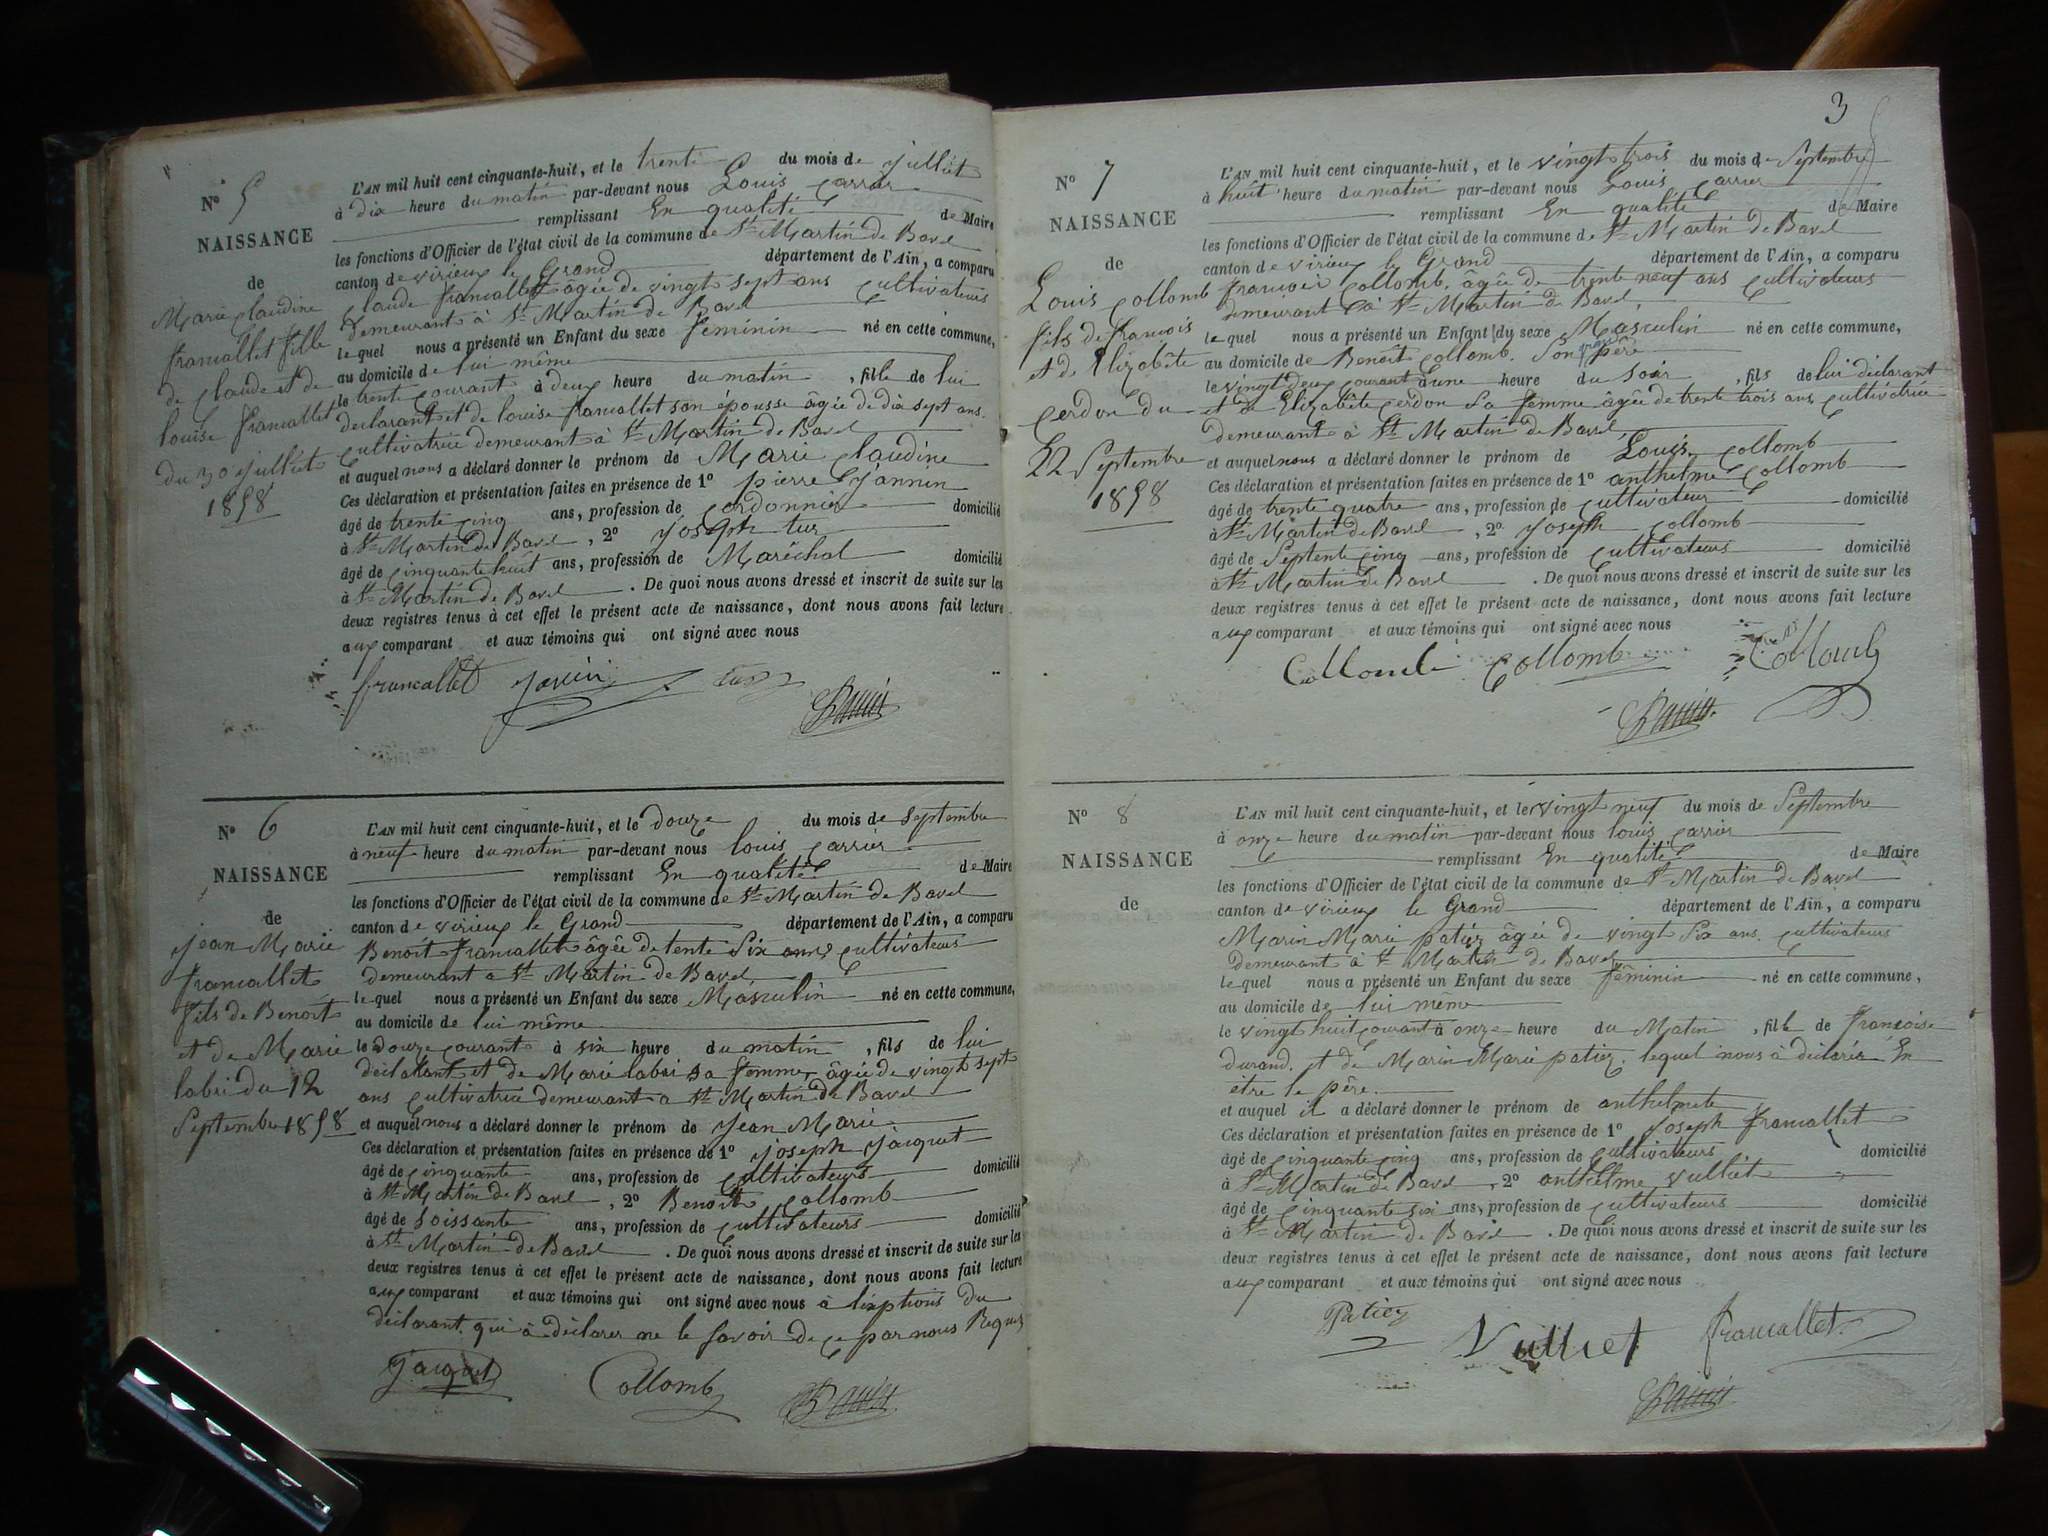 N° 5
NAISSANCE
de
Marie Claudine
francallet fille
de claude et de
louise francallet
du 30 juillet
1858
L'AN mil huit cent cinquante-huit, et le trente du mois de juillet
à dix heure du matin par-devant nous Louis carrier
remplissant En qualité de Maire
les fonctions d'Officier de l'état civil de la commune de St Martin de Bavel
canton de virieux le Grand département de l'Ain, a comparu
claude francallet âgée de vingt sept ans cultivateurs
demeurant à St Martin de Bavel
le quel nous a présenté un Enfant du sexe feminin né en cette commune,
au domicile de lui même
le trente courant à deux heure du matin, fille de lui
declarant et de louise francallet son épousse âgée de dix sept ans.
cultivatrice demeurant à St Martin de Bavel
et auquel nous a déclaré donner le prénom de Marie claudine
Ces déclaration et présentation faites en présence de 1° pierre
âgé de trente cinq ans, profession de cordonnier domicilié
à St Martin de Bavel, 2° joseph tur
âgé de cinquante huit ans, profession de Maréchal domicilié
à St Martin de Bavel. De quoi nous avons dressé et inscrit de suite sur les
deux registres tenus à cet effet le présent acte de naissance, dont nous avons fait lecture
aux comparant et aux témoins qui ont signé avec nous
francallet
N° 6
NAISSANCE
de
jean Marie
francallet
fils de Benoit
et de Marie
labri du 12
Septembre 1858
L'AN mil huit cent cinquante-huit, et le douze du mois de Septembre
à neuf heure du matin par-devant nous louis carrier
remplissant En qualité de Maire
les fonctions d'Officier de l'état civil de la commune de St Martin de Bavel
canton de virieux le Grand département de l'Ain, a comparu
Benoit francallet âgée de tente Six ans cultivateurs
demeurant a St Martin de Bavel
le quel nous a présenté un Enfant du sexe Masculin né en cette commune,
au domicile de lui même
le douze courant à six heure du matin, fils de lui
déclarant et de Marie labri sa femme âgée de vingt sept
ans cultivatrice demeurant a St Martin de Bavel
et auquel nous a déclaré donner le prénom de Jean Marie
Ces déclaration et présentation faites en présence de 1° joseph jacquet
âgé de cinquante ans, profession de cultivateurs domicilié
à St Martin de Bavel, 2° Benoit collomb
âgé de soissante ans, profession de cultivateurs domicilié
à St Martin de Bavel. De quoi nous avons dressé et inscrit de suite sur les
deux registres tenus à cet effet le présent acte de naissance, dont nous avons fait lecture
aux comparant et aux témoins qui ont signé avec nous à du
déclarant qui à déclarer ne le savoir de ce par nous Requis
jacquet Collomb
3
N° 7
NAISSANCE
de
Louis collomb
fils de francois
et de Elizabête
cerdon du
22 Septembre
1858
L'AN mil huit cent cinquante-huit, et le vingt trois du mois de Septembre
à huit heure du matin par-devant nous Louis carrier
remplissant En qualité de Maire
les fonctions d'Officier de l'état civil de la commune de St Martin de Bavel
canton de virieux le Grand département de l'Ain, a comparu
francois Collomb, âgée de trente neuf ans cultivateurs
demeurant à St Martin de Bavel
le quel nous a présenté un Enfant du sexe Masculin né en cette commune,
au domicile de Benoit collomb. Son père
le vingt deux courant à une heure du soir, fils de lui déclarant
et de Elizabête cerdon Sa femme âgée de trente trois ans cultivatrice
demeurant à St Martin de Bavel
et auquel nous a déclaré donner le prénom de Louis collomb
Ces déclaration et présentation faites en présence de 1° anthelme collomb
âgé de trente quatre ans, profession de cultivateur domicilié
à St Martin de Bavel, 2° joseph collomb
âgé de Septente cinq ans, profession de cultivateurs domicilié
à St Martin de Bavel. De quoi nous avons dressé et inscrit de suite sur les
deux registres tenus à cet effet le présent acte de naissance, dont nous avons fait lecture
aux comparant et aux témoins qui ont signé avec nous
Collomb collomb Collomb
N° 8
NAISSANCE
de
L'AN mil huit cent cinquante-huit, et le vingt neuf du mois de Septembre
à onze heure du matin par-devant nous louis carrier
remplissant En qualité de Maire
les fonctions d'Officier de l'état civil de la commune de St Martin de Bavel
canton de virieux le Grand département de l'Ain, a comparu
Marin Marie patiez âgée de vingt Six ans. cultivateurs
demeurant à St Martin de Bavel
le quel nous a présenté un Enfant du sexe féminin né en cette commune,
au domicile de lui meme
le vingt huit courant à onze heure du Matin, fille de francoise
durand. et de Marin Marie patiez. lequel nous à déclarée En
être le père.
et auquel il a déclaré donner le prénom de anthelmete
Ces déclaration et présentation faites en présence de 1° Joseph francallet
âgé de cinquante cinq ans, profession de cultivateurs domicilié
à St Martin de Bavel, 2° anthelme vulliet
âgé de cinquante six ans, profession de cultivateurs domicilié
à St Martin de Bavel. De quoi nous avons dressé et inscrit de suite sur les
deux registres tenus à cet effet le présent acte de naissance, dont nous avons fait lecture
aux comparant et aux témoins qui ont signé avec nous
Patiez Vulliet francallet